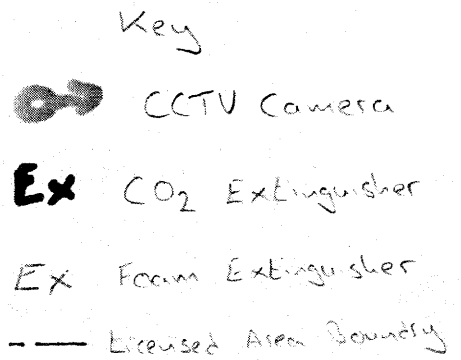 Key
CCTV Camera
Ex CO₂ Extinguisher
Ex Foam Extinguisher
Licensed Area Boundry